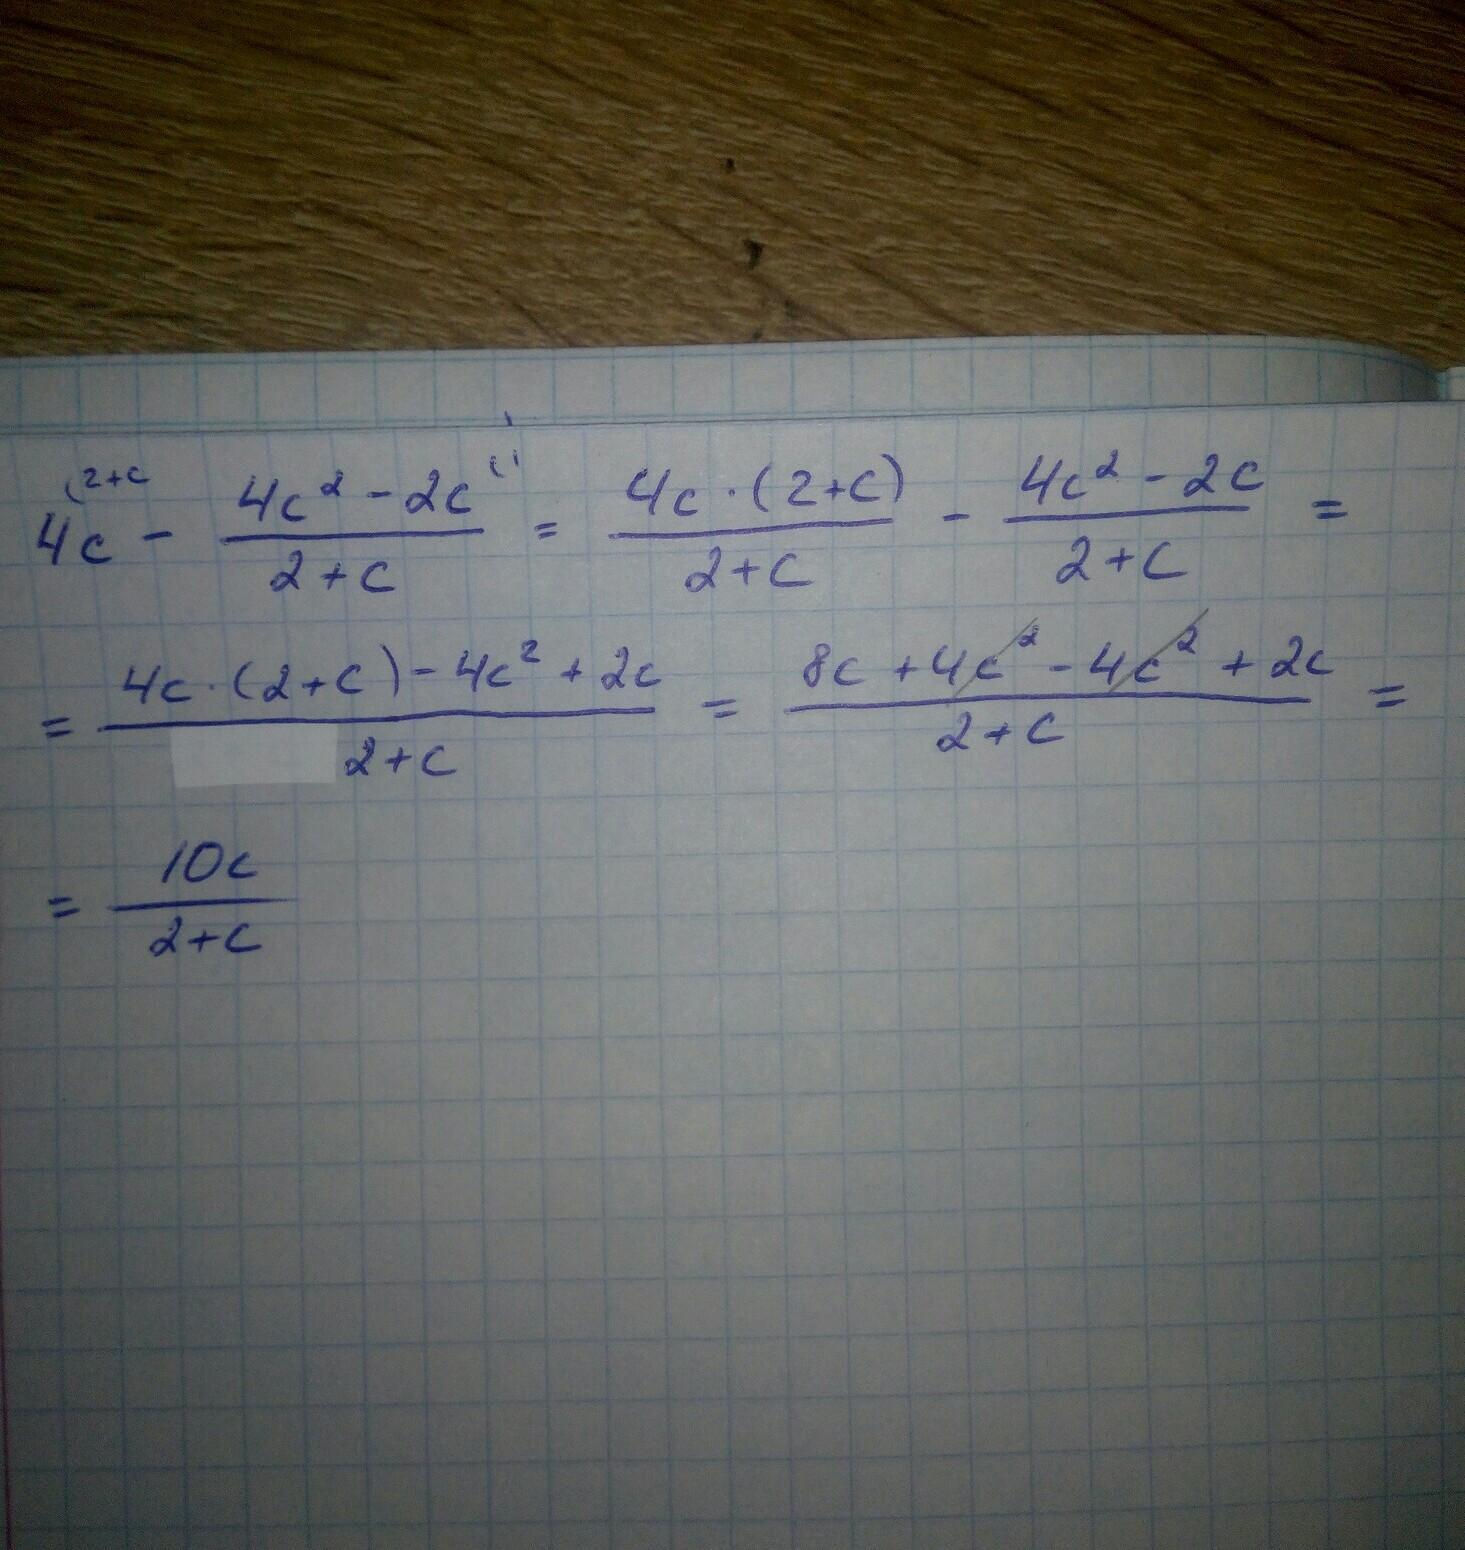 4c^(2+c - (4c² - 2c)/(2+c) ^(1 = (4c · (2+c))/(2+c) - (4c² - 2c)/(2+c) =
= (4c · (2+c) - 4c² + 2c)/(2+c) = (8c + 4c² - 4c² + 2c)/(2+c) =
= 10c/(2+c)